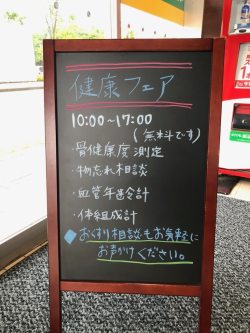 健康フェア
10:00~17:00
(無料です)
・骨健康度測定
・物忘れ相談
・血管年令計
・体組成計
◆おくすり相談もお気軽に
お声がけください。